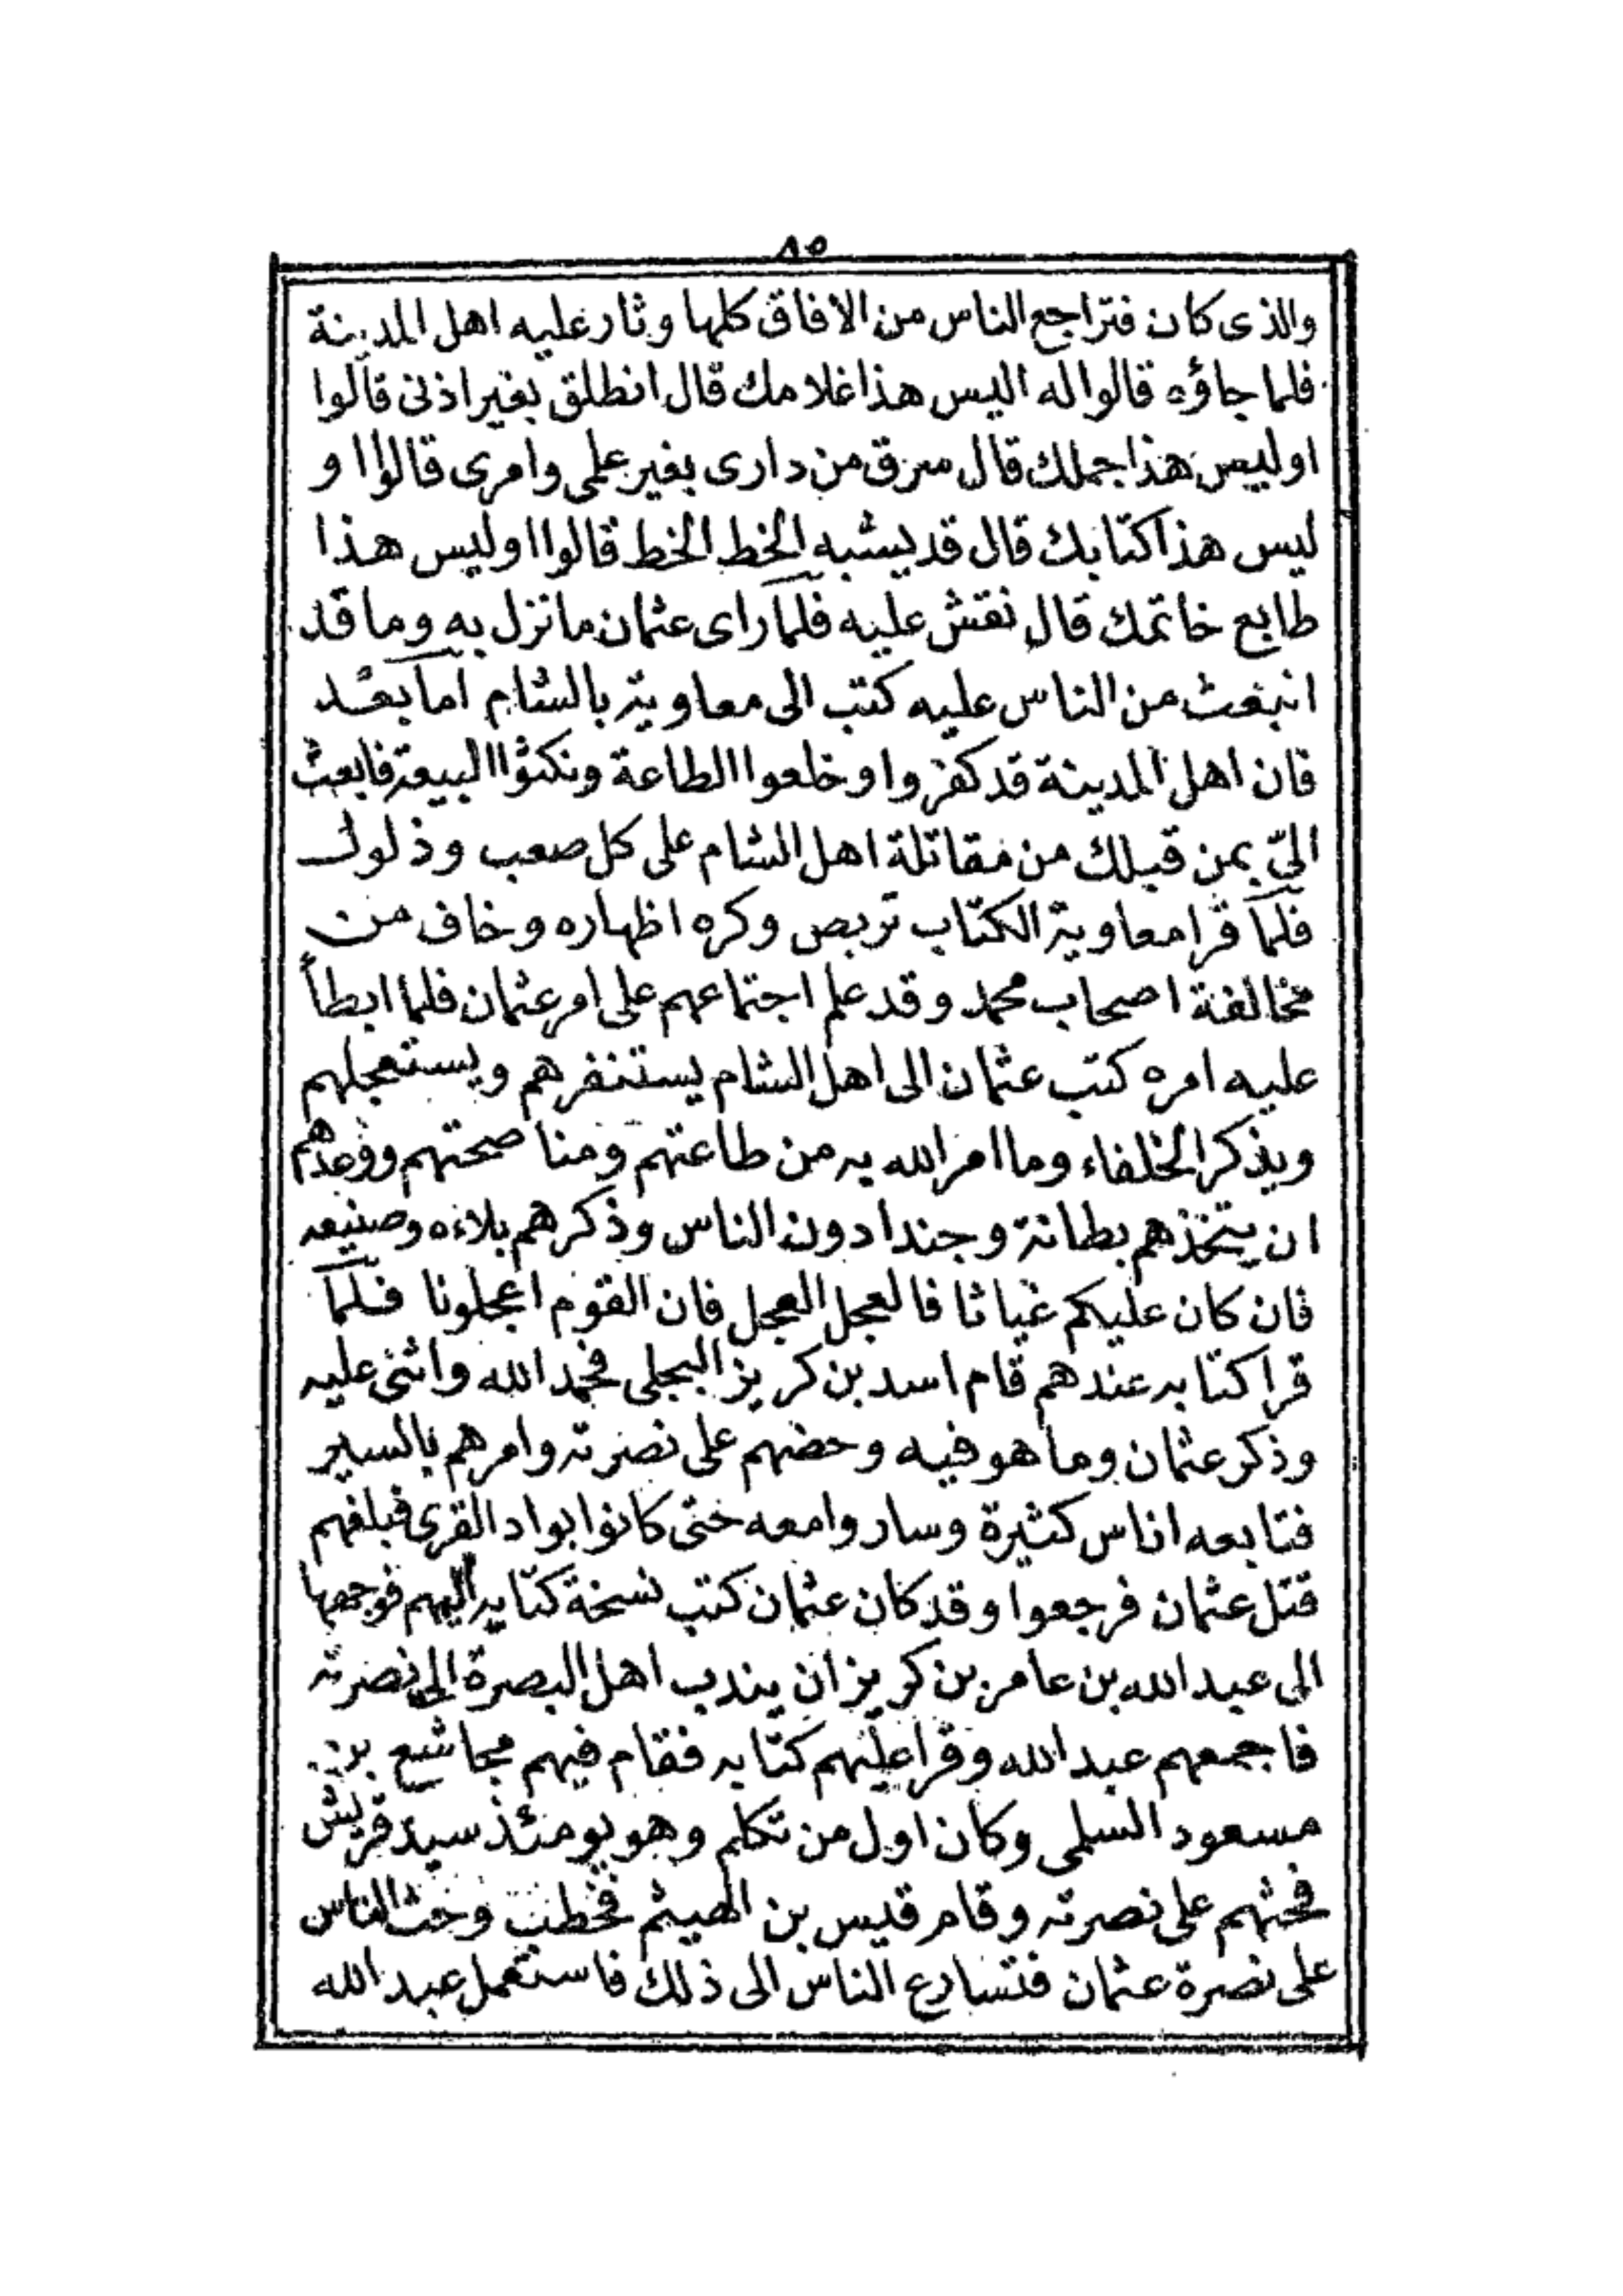 ٨٥
والذى كان فتراجع الناس من الافاق كلها وثار عليه اهل المدينة
فلما جاؤه قالوا له اليس هذا غلامك قال انطلق بغير اذنى قالوا
اوليس هذا جملك قال سرق من دارى بغير علمى وامرى قالوا او
ليس هذا كتابك قال قد يشبه الخط الخط قالوا اوليس هذا
طابع خاتمك قال نقش عليه فلما راى عثمان ما نزل به وما قد
انبعث من الناس عليه كتب الى معاوية بالشام اما بعد
فان اهل المدينة قد كفروا وخلعوا الطاعة ونكثوا البيعة فابعث
الىّ بمن قبلك من مقاتلة اهل الشام على كل صعب وذلول
فلما قرا معاوية الكتاب تربص وكره اظهاره وخاف من
مخالفة اصحاب محمد وقد علم اجتماعهم على امر عثمان فلما ابطأ
عليه امره كتب عثمان الى اهل الشام يستنفرهم ويستعجلهم
ويذكر الخلفاء وما امر الله به من طاعتهم ومناصحتهم ووعدهم
ان يتخذهم بطانة وجندا دون الناس وذكرهم بلاءه وصنيعه
فان كان عليكم غياثا فالعجل العجل فان القوم اعجلونا فلما
قرا كتابه عندهم قام اسد بن كريز البجلى فحمد الله واثنى عليه
وذكر عثمان وما هو فيه وحضهم على نصرته وامرهم بالسير
فتابعه اناس كثيرة وساروا معه حتى كانوا بواد القرى فبلغهم
قتل عثمان فرجعوا وقد كان عثمان كتب نسخة كتابه اليهم فوجهها
الى عبد الله بن عامر بن كريز ان يندب اهل البصرة الى نصرته
فاجمعهم عبد الله وقرا عليهم كتابه فقام فيهم مجاشع بن
مسعود السلمى وكان اول من تكلم وهو يومئذ سيد قريش
فحثهم على نصرته وقام قيس بن الهيثم فخطب وحث الناس
على نصرة عثمان فتسارع الناس الى ذلك فاستعمل عبد الله